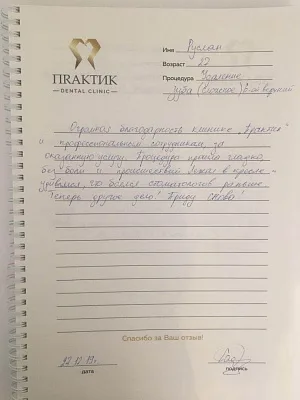 ПRАКТИК
— DENTAL CLINIC —
Имя Руслан
Возраст 27
Процедура Удаление
зуба (Сложное) 8-ой верхний
Огромная благодарность клинике „Практик"
и профессиональным сотрудникам, за
оказанную услугу. Процедура прошла гладко,
без боли и происшествий. Лежал в кресле -
удивлялся, что боялся стоматологов раньше
Теперь другое дело! Приду снова!
Спасибо за Ваш отзыв!
дата
подпись